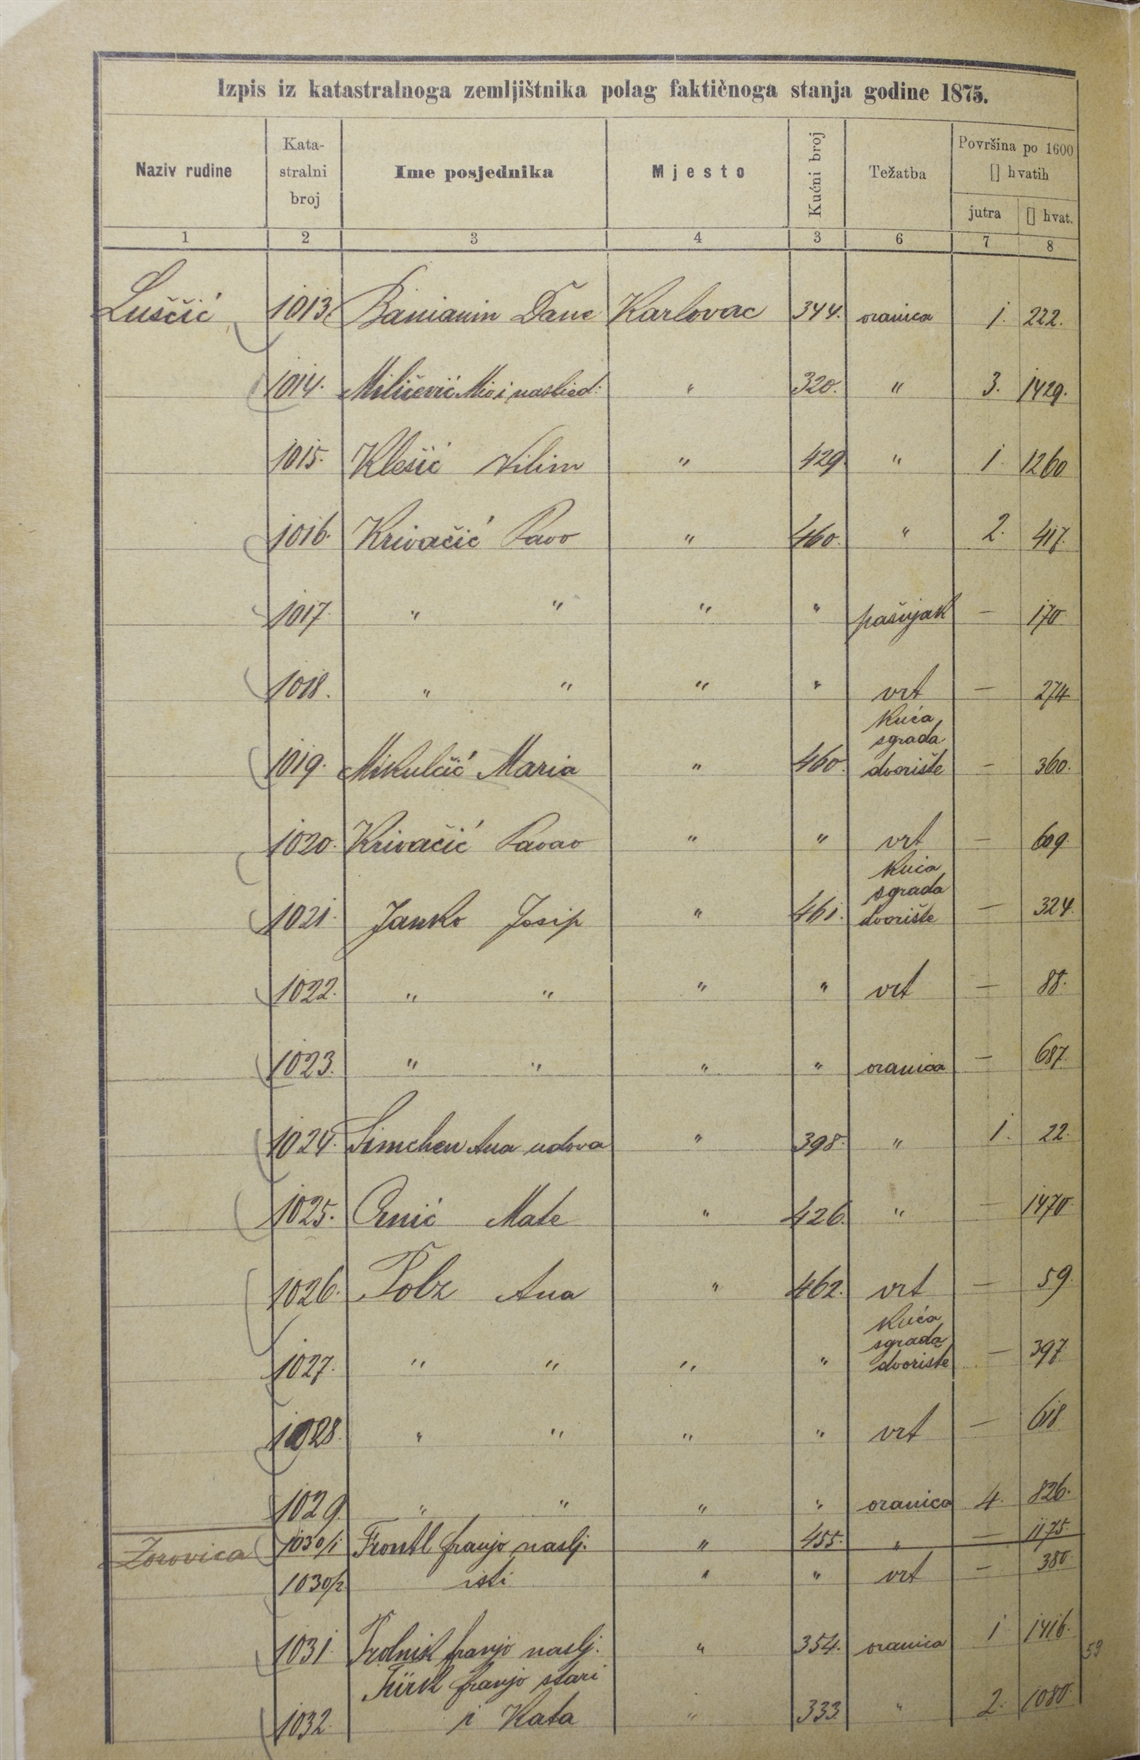 Izpis iz katastralnoga zemljištnika polag faktičnoga stanja godine 1875.
Naziv rudine Kata-stralni broj Ime posjednika Mjesto Kućni broj Težatba Površina po 1600 [] hvatih
jutra [] hvat.
1 2 3 4 3 6 7 8
Luščić 1013. Banianin Dane Karlovac 344. oranica 1. 222.
1014. Milićević Mio i naslied. " 320. " 3. 1429.
1015. Klešić Vilim " 429 " 1 1260
1016. Krivačić Pavo " 460. " 2. 417.
1017. " " " " pašnjak — 170
1018. " " " " vrt — 274
1019. Mikulčić Maria " 460. kuća sgrada dvorište — 360.
1020. Krivačić Pavao " " vrt — 609
1021. Janko Josip " 461. kuća sgrada dvorište — 324.
1022. " " " " vrt — 88.
1023. " " " " oranica — 687.
1024. Simchen Ana udova " 398. " 1. 22.
1025. Crnić Mate " 426. " — 1470.
1026. Polz Ana " 462. vrt — 59.
1027. " " " " kuća sgrada dvorište — 397
1028. " " " " vrt — 618
1029. " " " " oranica 4. 826.
Zorovica 1030/1 Frontl franjo naslj. " 455. " — 1175.
1030/2 isti " " vrt — 380
1031. Trolnik franjo naslj. " 354. oranica 1 1416.
53
1032. Türk franjo stari
i Kata " 333. " 2. 1080.